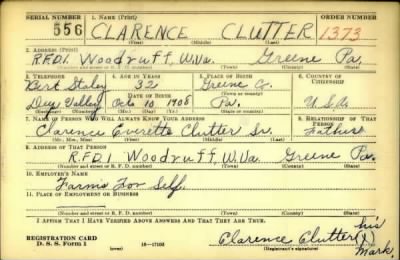 SERIAL NUMBER 1. NAME (Print) ORDER NUMBER
556 CLARENCE CLUTTER 1373
(First) (Middle) (Last)
2. ADDRESS (Print)
R.F.D.1. Woodruff, W.Va. Greene Pa.
(Number and street or R. F. D. number) (Town) (County) (State)
3. TELEPHONE 4. AGE IN YEARS 5. PLACE OF BIRTH 6. COUNTRY OF CITIZENSHIP
Bert Staley 32 Greene Co.
DATE OF BIRTH (Town or county)
Dey Valley Oct 10 1908 Pa. U.S.A.
(Exchange) (Number) (Mo.) (Day) (Yr.) (State or country)
7. NAME OF PERSON WHO WILL ALWAYS KNOW YOUR ADDRESS 8. RELATIONSHIP OF THAT PERSON
Clarence Everette Clutter Sr. Father
(Mr., Mrs., Miss) (First) (Middle) (Last)
9. ADDRESS OF THAT PERSON
R.F.D.1 Woodruff, W.Va. Greene Pa.
(Number and street or R. F. D. number) (Town) (County) (State)
10. EMPLOYER'S NAME
Farms For Self.
11. PLACE OF EMPLOYMENT OR BUSINESS
(Number and street or R. F. D. number) (Town) (County) (State)
I AFFIRM THAT I HAVE VERIFIED ABOVE ANSWERS AND THAT THEY ARE TRUE.
REGISTRATION CARD his
D. S. S. Form 1 (over) 16—17105 Clarence Clutter (x)
(Registrant's signature) Mark.